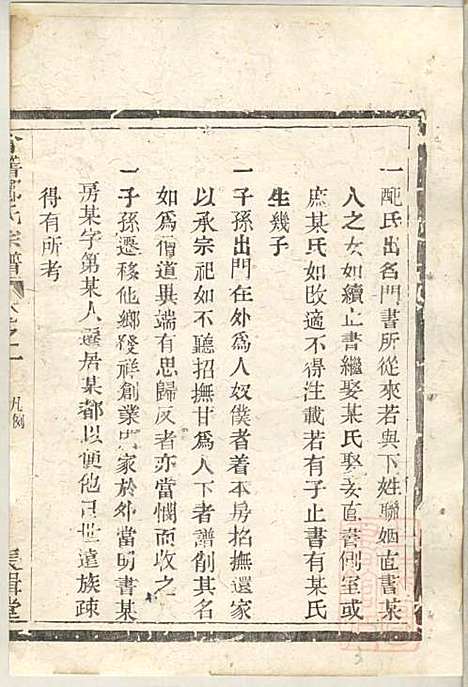 一配氏出名門書所從來若與下姓聯婚直書某
人之女如續止書繼娶某氏娶妾直書側室或
庶某氏如改適不得注載若有子止書有某氏
生幾子
一子孫出門在外為人奴僕者着本房招撫還家
以承宗祀如不聽招撫甘為人下者譜削其名
如為僧道異端有思歸反者亦當憫而收之
一子孫遷移他鄉發祥創業家於外當明書某
房某字第某人遷居某都以便他日世遠族疎
得有所考
氏宗譜 卷之一 凡例 堂